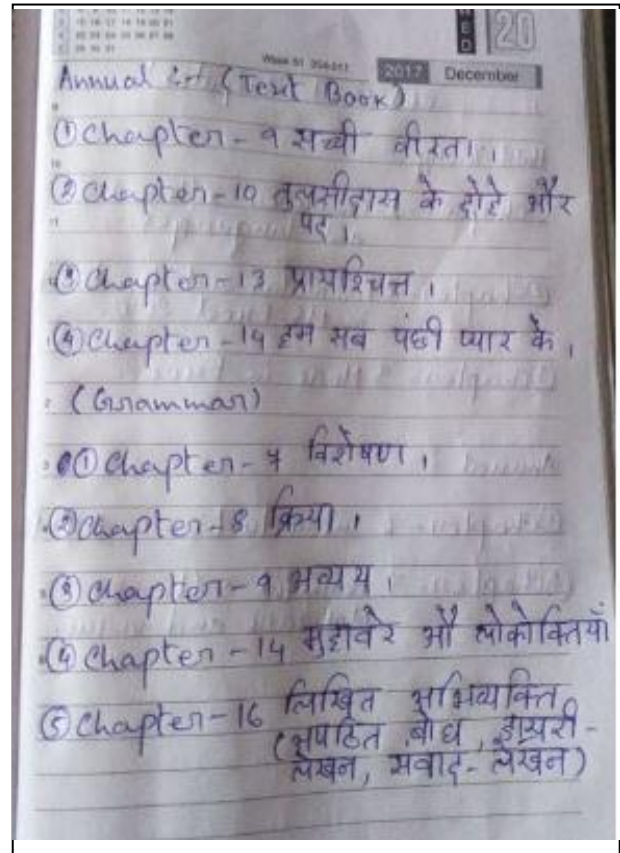 WED 20
Week 51 354-011
2017 December
Annual (Text Book)
① Chapter - 9 सच्ची वीरता ।
② Chapter - 10 तुलसीदास के दोहे और
पद ।
③ Chapter - 13 प्रायश्चित्त ।
④ Chapter - 14 हम सब पंछी प्यार के ।
(Grammar)
① Chapter - 7 विशेषण ।
② Chapter - 8 क्रिया ।
③ Chapter - 9 अव्यय ।
④ Chapter - 14 मुहावरे औ लोकोक्तियाँ
⑤ Chapter - 16 लिखित अभिव्यक्ति
(अपठित बोध, डायरी-
लेखन, संवाद- लेखन)